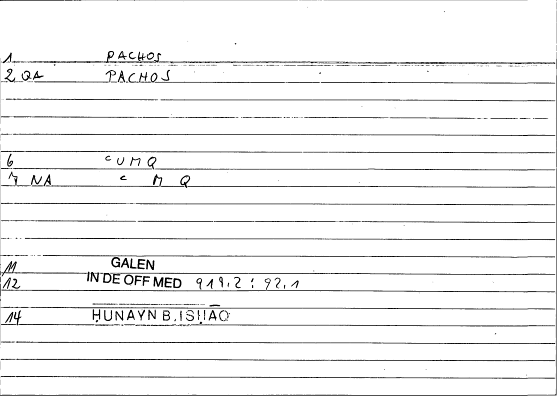 1 PACHOS
2 QA PACHOS
6 ᶜUMQ
7 NA ᶜ M Q
11 GALEN
12 IN DE OFF MED 919.2 : 92.1
14 ḤUNAYN B. ISḤĀQ